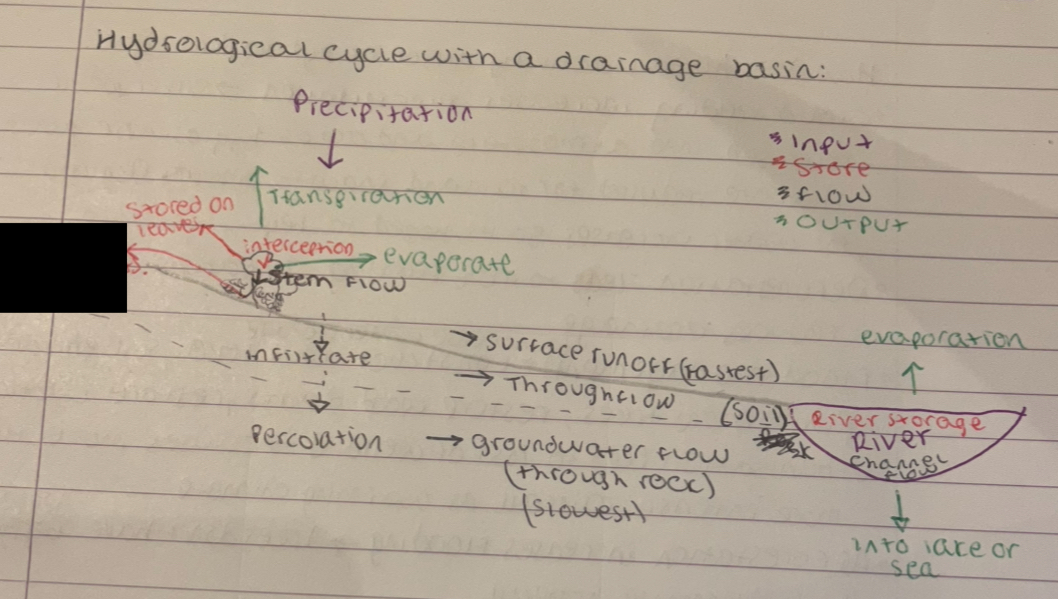 Hydrological cycle with a drainage basin:
Precipitation
* input
* store
* flow
* output
Transpiration
stored on
leaves
interception
evaporate
stem flow
infiltrate
surface runoff (fastest)
Throughflow
(soil)
evaporation
River storage
River
channel
flow
Percolation
groundwater flow
(through rock)
(slowest)
into lake or
sea